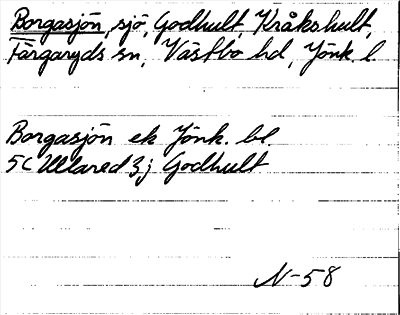 Borgasjön, sjö, Godhult, Kråkshult,
Färgaryds sn, Västbo hd, Jönk. l.
Borgasjön ek Jönk. bl.
5C Ullared 3j Godhult
N-58